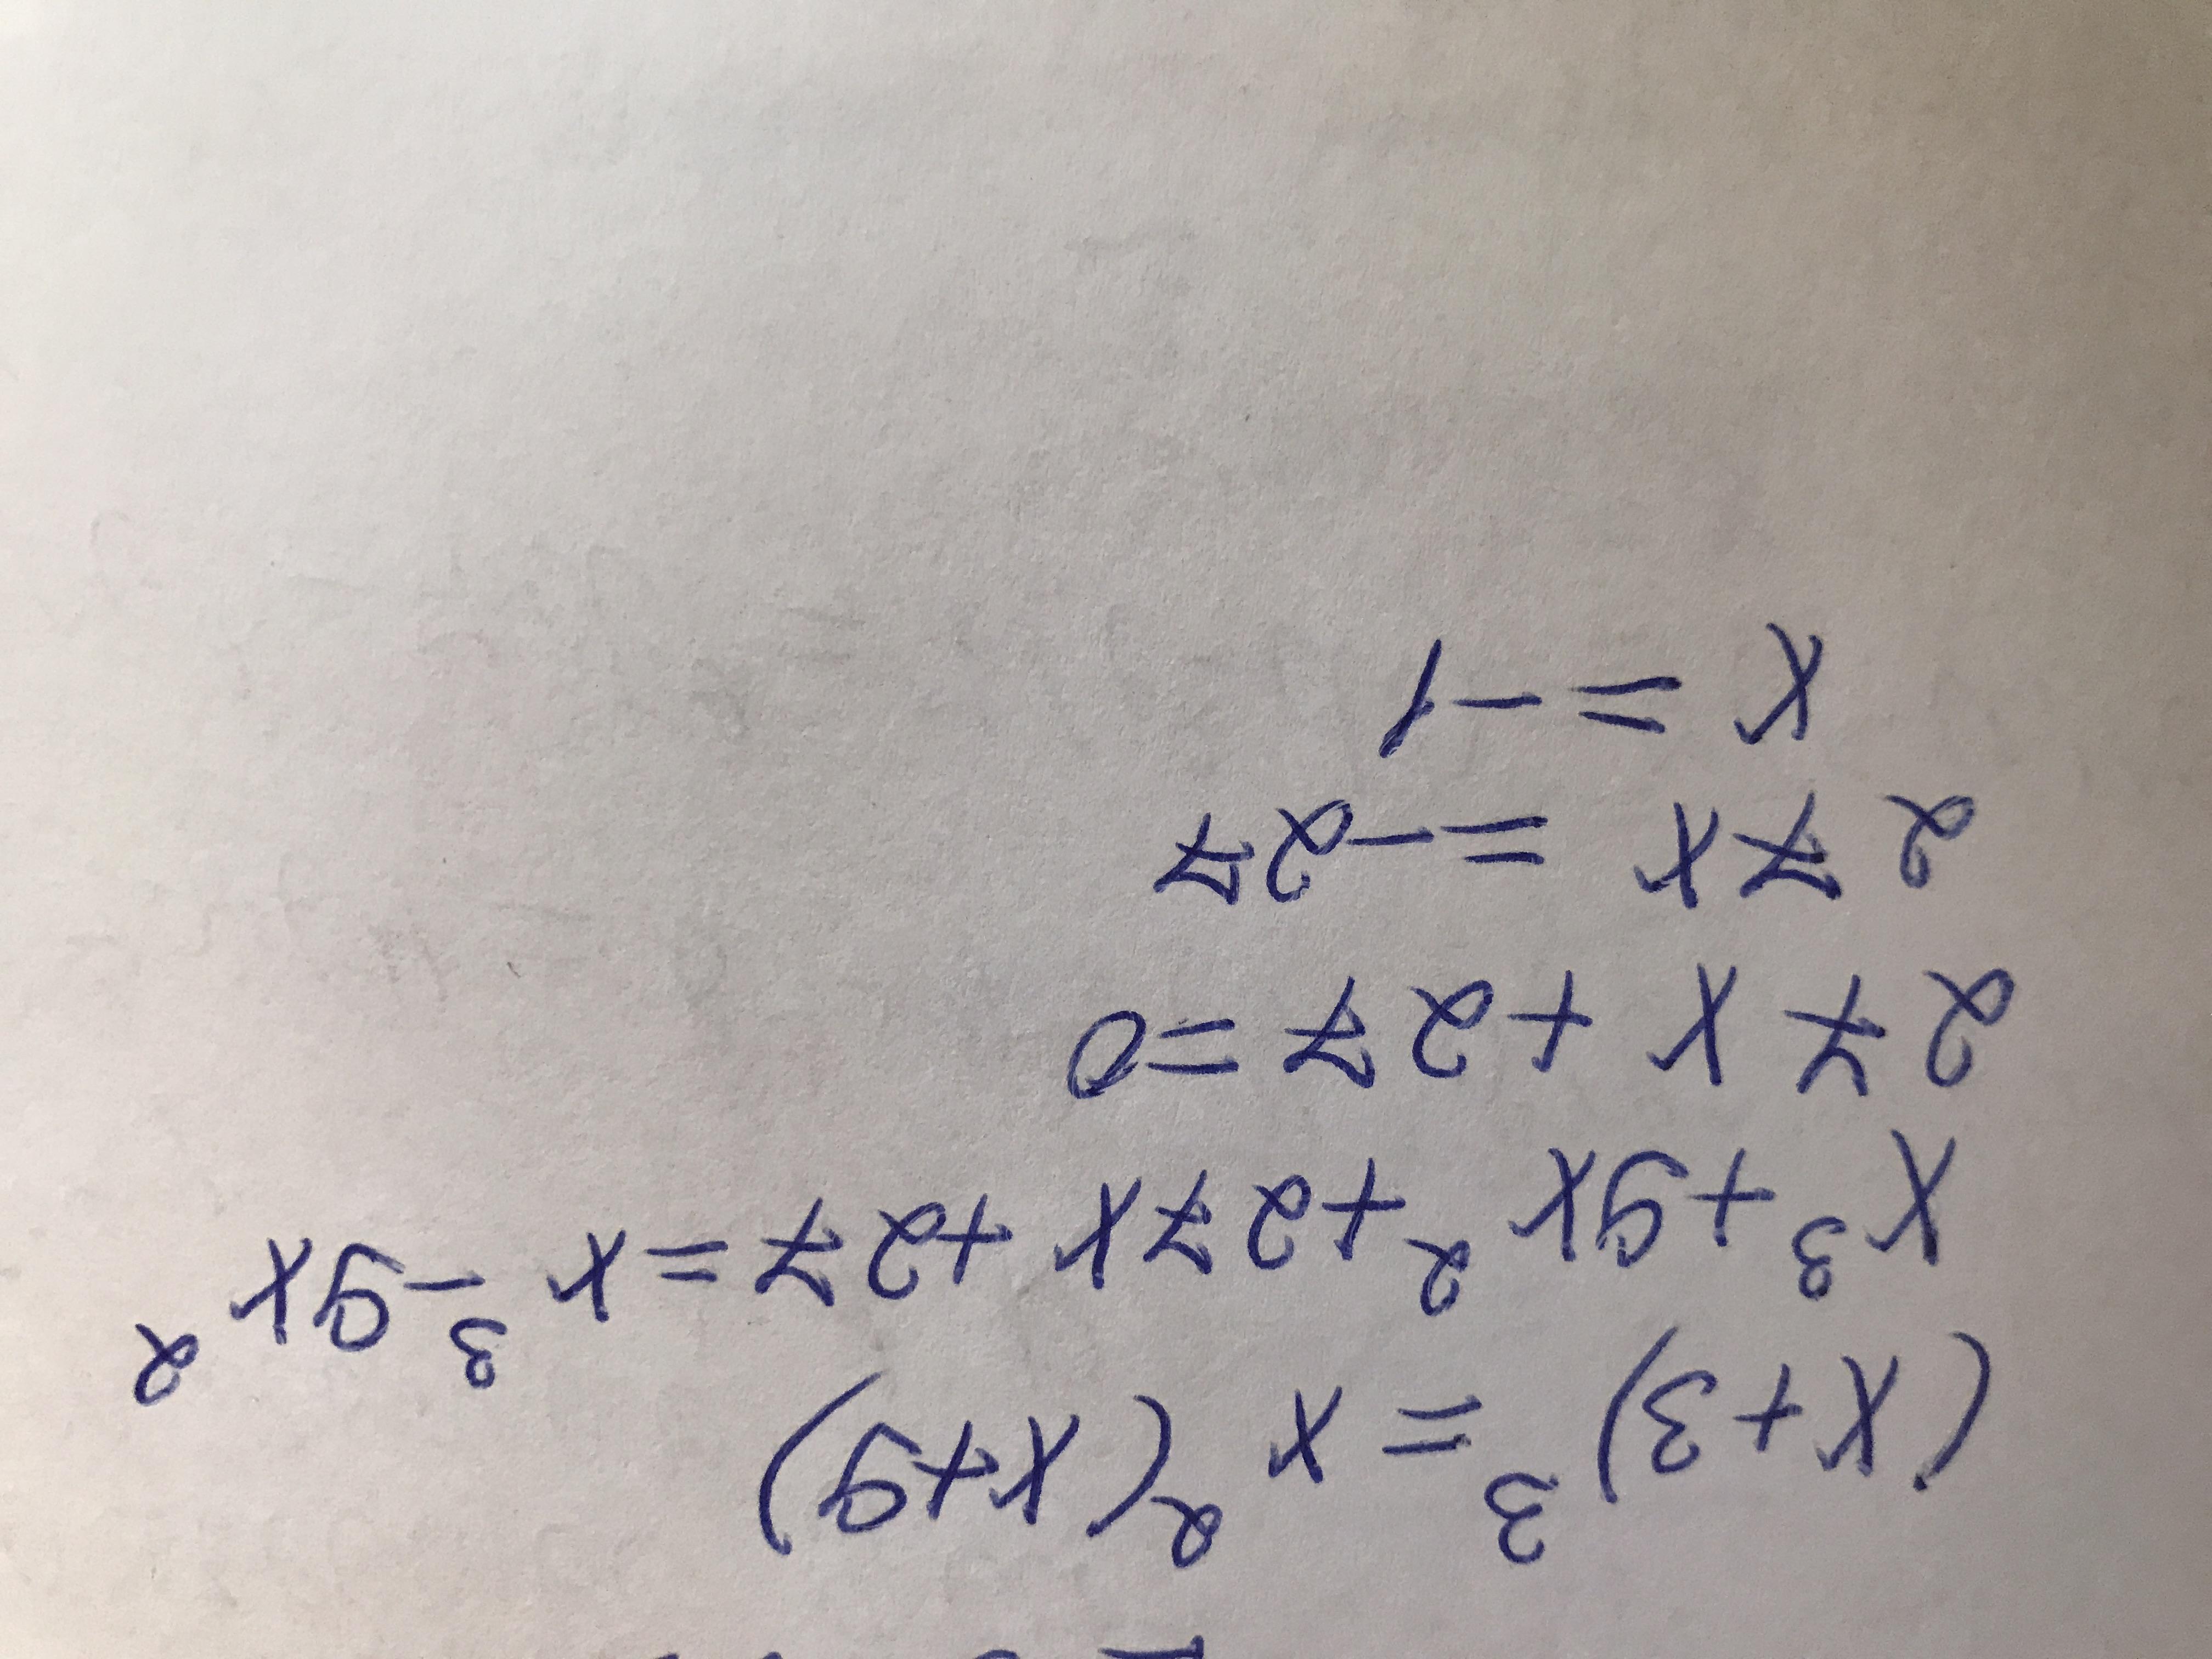 (x+3)³ = x²(x+9)
x³+9x²+27x+27=x³-9x²
27x+27=0
27x=-27
x=-1